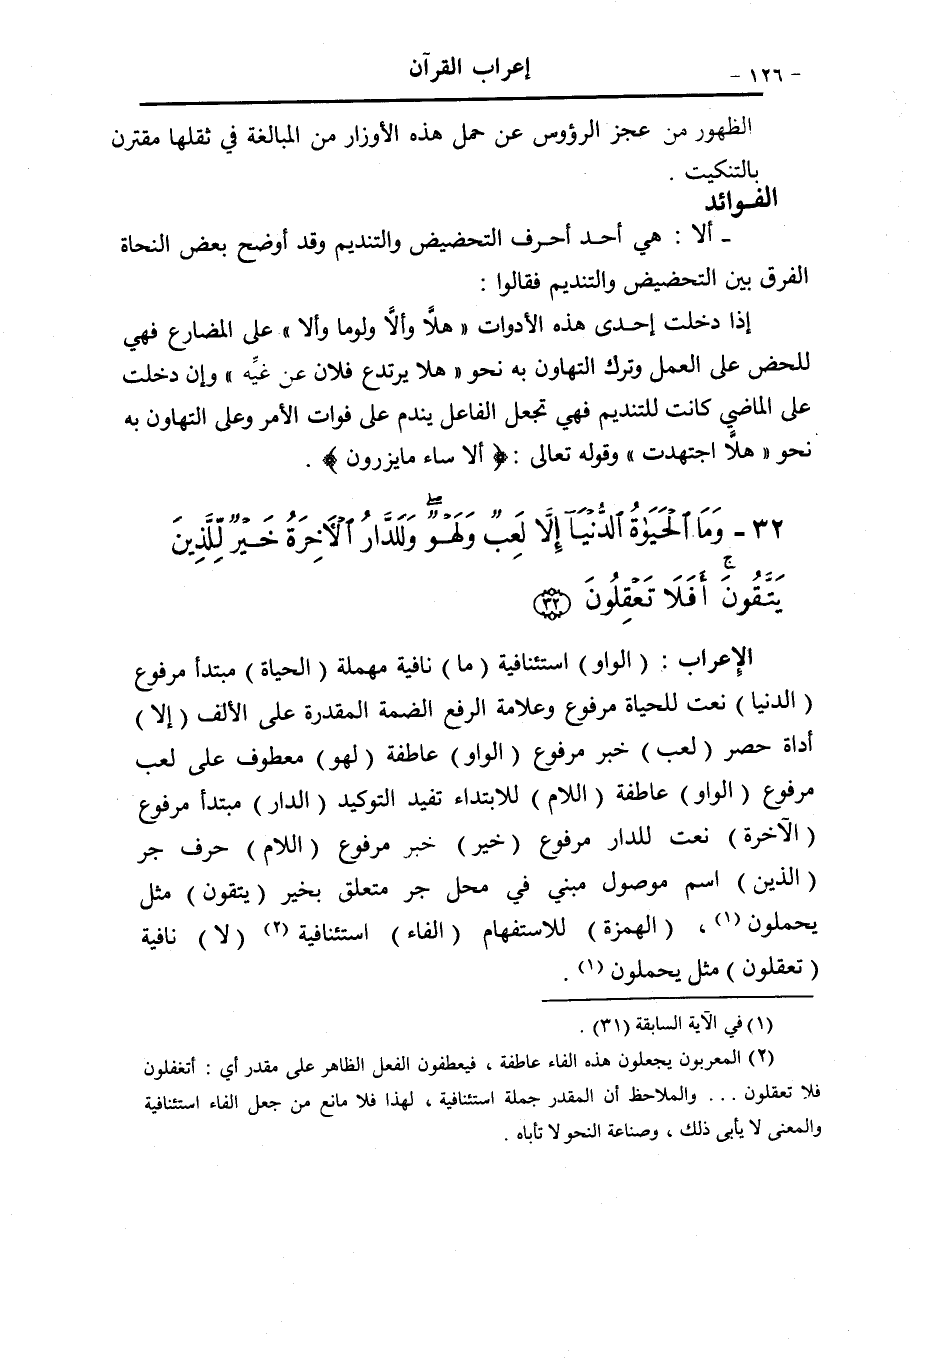 - ١٢٦ - إعراب القرآن
الظهور من عجز الرؤوس عن حمل هذه الأوزار من المبالغة في ثقلها مقترن
بالتنكيت .
الفـوائد
ـ ألا : هي أحـد أحـرف التحضيض والتنديم وقد أوضح بعض النحاة
الفرق بين التحضيض والتنديم فقالوا :
إذا دخلت إحـدى هذه الأدوات « هلاَّ وألاَّ ولوما وألا » على المضارع فهي
للحض على العمل وترك التهاون به نحو « هلا يرتدع فلان عن غيِّه » وإن دخلت
على الماضي كانت للتنديم فهي تجعل الفاعل يندم على فوات الأمر وعلى التهاون به
نحو « هلاَّ اجتهدت » وقوله تعالى : ﴿ ألا ساء مايزرون ﴾ .
٣٢ - وَمَا ٱلْحَيَوٰةُ ٱلدُّنْيَآ إِلَّا لَعِبٌ وَلَهْوٌ ۖ وَلَلدَّارُ ٱلْأَخِرَةُ خَيْرٌ لِّلَّذِينَ
يَتَّقُونَ ۚ أَفَلَا تَعْقِلُونَ ﴿٣٢﴾
الإعراب : ( الواو ) استئنافية ( ما ) نافية مهملة ( الحياة ) مبتدأ مرفوع
( الدنيا ) نعت للحياة مرفوع وعلامة الرفع الضمة المقدرة على الألف ( إلا )
أداة حصر ( لعب ) خبر مرفوع ( الواو ) عاطفة ( لهو ) معطوف على لعب
مرفوع ( الواو ) عاطفة ( اللام ) للابتداء تفيد التوكيد ( الدار ) مبتدأ مرفوع
( الآخرة ) نعت للدار مرفوع ( خير ) خبر مرفوع ( اللام ) حرف جر
( الذين ) اسم موصول مبني في محل جر متعلق بخير ( يتقون ) مثل
يحملون (١) ، ( الهمزة ) للاستفهام ( الفاء ) استئنافية (٢) ( لا ) نافية
( تعقلون ) مثل يحملون (١) .
(١) في الآية السابقة (٣١) .
(٢) المعربون يجعلون هذه الفاء عاطفة ، فيعطفون الفعل الظاهر على مقدر أي : أتغفلون
فلا تعقلون ... والملاحظ أن المقدر جملة استئنافية ، لهذا فلا مانع من جعل الفاء استئنافية
والمعنى لا يأبى ذلك ، وصناعة النحو لا تأباه .